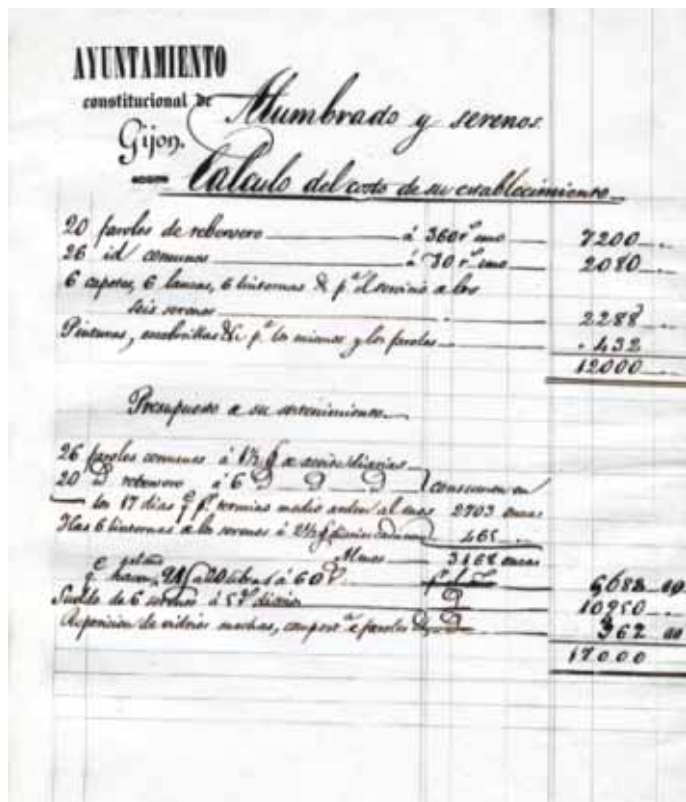 AYUNTAMIENTO
constitucional de
Gijon.
Alumbrado y serenos.
Calculo del costo de su establecimiento
20 faroles de rebervero à 360 r.s uno 7200
26 id comunes à 80 r.s uno 2080
6 capotes, 6 lanzas, 6 linternas & p.a el servicio a los
seis serenos 2288
Pinturas, escobillas &c p.a los mismos y los faroles 432
12000
Presupuesto a su sostenimiento
26 faroles comunes à 1½ de aceite diarias
20 rebervero à 6 consumen en
los 17 dias q.e p.r termino medio arden al mes 2703 onzas
Mas 6 linternas a los serenos à 2½ 465
Al mes 3168 onzas
q.e hacen à 60 6688
Sueldo de 6 serenos à 5 r.s diarios 10950
Reposicion de vidrios mechas, compost.a de faroles & 362
17000